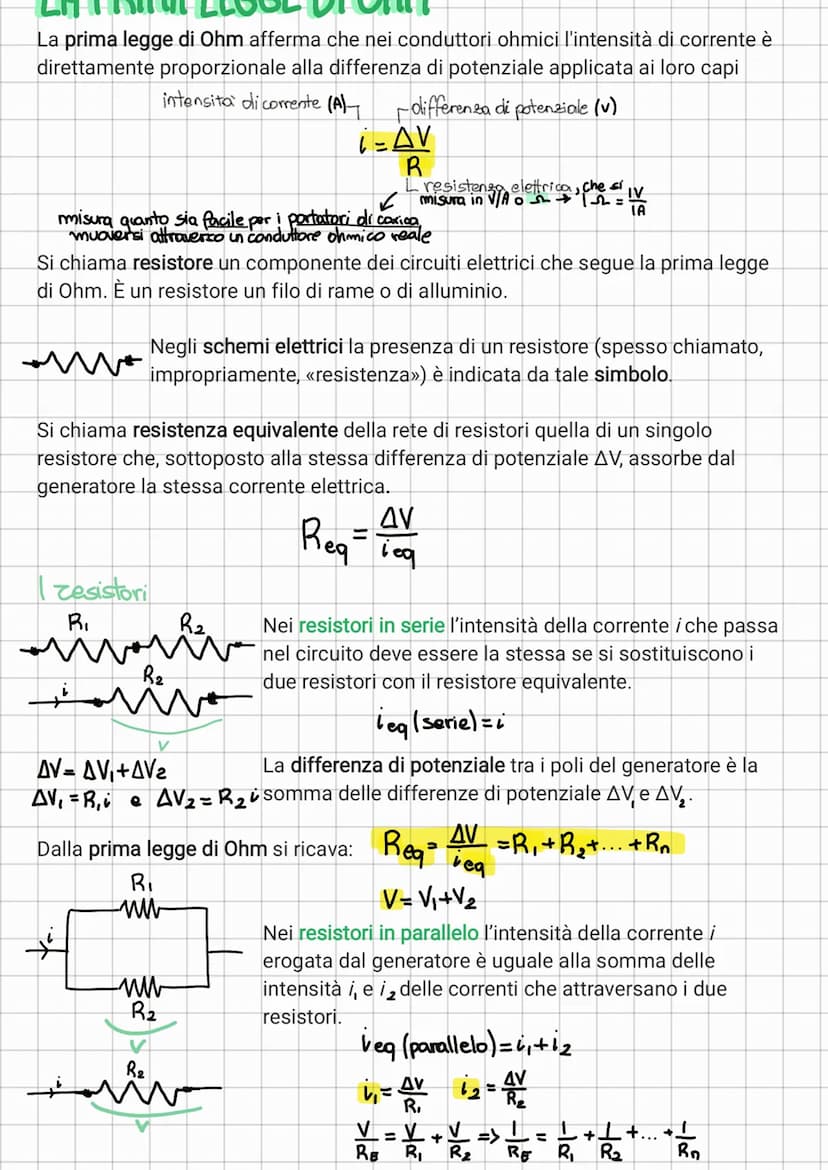 LA PRIMA LEGGE DI OHM
La prima legge di Ohm afferma che nei conduttori ohmici l'intensità di corrente è
direttamente proporzionale alla differenza di potenziale applicata ai loro capi
intensità di corrente (A)
differenza di potenziale (V)
i = ΔV/R
resistenza elettrica, che si
misura in V/A o Ω → 1Ω = 1V/1A
misura quanto sia facile per i portatori di carica
muoversi attraverso un conduttore ohmico reale
Si chiama resistore un componente dei circuiti elettrici che segue la prima legge
di Ohm. È un resistore un filo di rame o di alluminio.
Negli schemi elettrici la presenza di un resistore (spesso chiamato,
impropriamente, «resistenza») è indicata da tale simbolo.
Si chiama resistenza equivalente della rete di resistori quella di un singolo
resistore che, sottoposto alla stessa differenza di potenziale ΔV, assorbe dal
generatore la stessa corrente elettrica.
Req = ΔV/ieq
I resistori
R₁ R₂
Nei resistori in serie l'intensità della corrente i che passa
nel circuito deve essere la stessa se si sostituiscono i
R₂
due resistori con il resistore equivalente.
i
ieq (serie) = i
V
ΔV = ΔV₁+ΔV₂
La differenza di potenziale tra i poli del generatore è la
ΔV₁ = R₁i e ΔV₂ = R₂i
somma delle differenze di potenziale ΔV₁ e ΔV₂.
Dalla prima legge di Ohm si ricava:
Req = ΔV/ieq = R₁+R₂+...+Rn
R₁
V = V₁+V₂
i
Nei resistori in parallelo l'intensità della corrente i
erogata dal generatore è uguale alla somma delle
intensità i₁ e i₂ delle correnti che attraversano i due
R₂
resistori.
V
ieq (parallelo) = i₁+i₂
R₂
i
i₁ = ΔV/R₁ i₂ = ΔV/R₂
V
V/RE = V/R₁ + V/R₂ => 1/RE = 1/R₁ + 1/R₂ + ... + 1/Rn